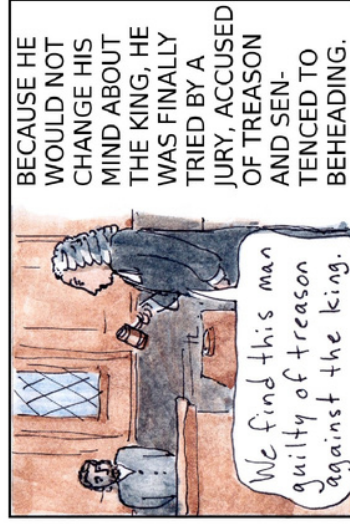 BECAUSE HE
WOULD NOT
CHANGE HIS
MIND ABOUT
THE KING, HE
WAS FINALLY
TRIED BY A
JURY, ACCUSED
OF TREASON
AND SEN-
TENCED TO
BEHEADING.
We find this man
guilty of treason
against the king.